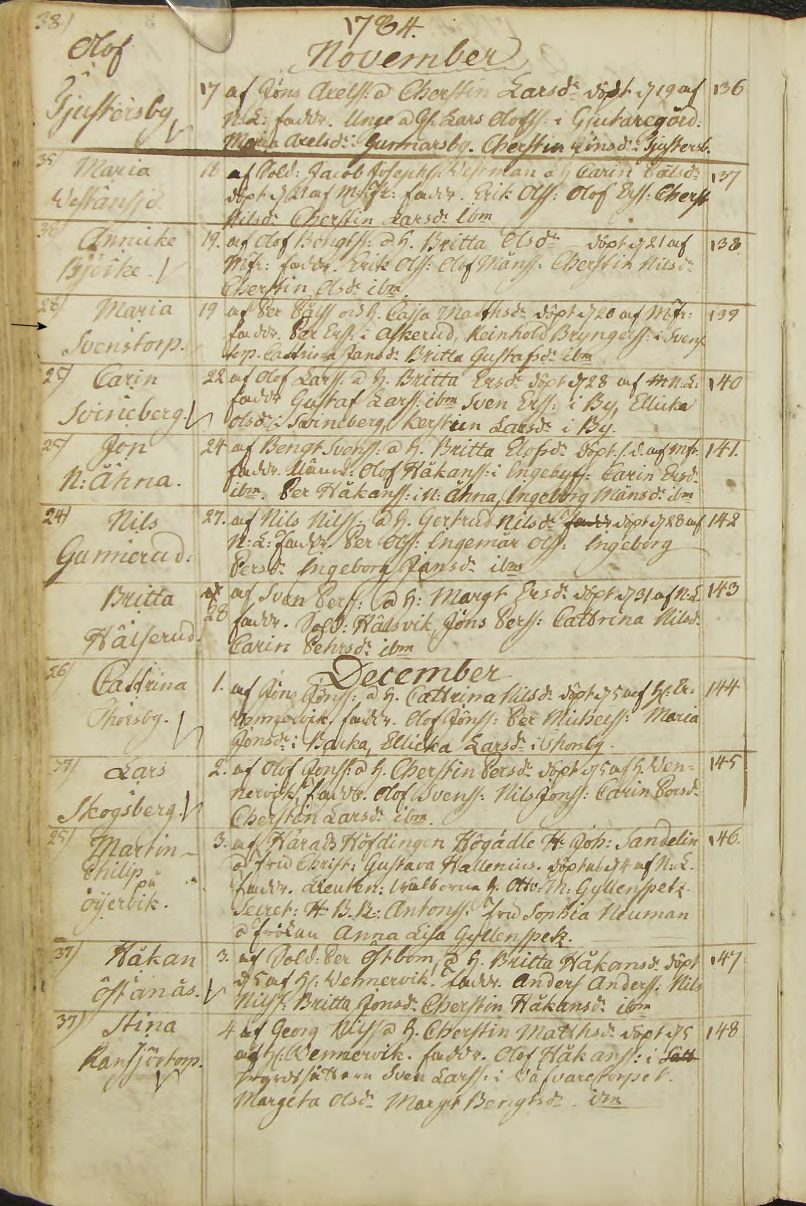 1784.
November
38/ Olof
Gjustersby
17 af Jöns Axelss: & Cherstin Larsd: döpt d 19 af 136
N:L: faddr. Unge & Gl. Lars Olofss: i Gjutaregård.
Maria Axelsd: i Gunnarsby. Cherstin Jönsd: i Gjustersb.
35 Maria
18 af Sold: Jacob Josephs: Westman & h Carin 137
döpt d 21 af M:Fr: faddr. Erik Olss: Olof Erss: Cherst
Nilsd: Cherstin Larsd: ibm
Annicke
Björke.
19. af Olof Bengtss: & h. Britta Olsd: döpt d 21 af 138
M:fr: faddr. Erik Olss: Olof Månss. Cherstin Nilsd:
Cherstin Olsd: ibm
28/ Maria
Svenstorp.
19 af Per & h. Cajsa Matthsd: döpt d 20 af M:Fr: 139
faddr. Per Erss: i Askerud, Reinhold Bryngelss: i Svens
torp. Cattrina Jansd: Britta Gustafsd: ibm
29/ Carin
Svineberg.
22 af Olof Larss: & h. Britta Ersd: döpt d 28 af N:L: 140
faddr Gustaf Larss: ibm Sven Erss: i By, Ellicka
Olsd: i Svineberg, Kerstin Larsd: i By.
25/ Jon
N: Åhna.
24 af Bengt Svenss: & h. Britta Elofsd: döpt s. d. af Mfr. 141.
faddr. Olof Håkanss: i Carin Ersd:
ibm. Per Håkanss: i N: Åhna, Ingeborg Månsd: ibm
24/ Nils
Gunnerud.
27. af Nils Nilss: & h. Gertrud Nilsd: döpt d 28 af 142
N:L: faddr. Per Olss: Ingemar Olss: Ingeborg
Persd: Ingeborg Jansd: ibm
Britta
28 af Sven Perss: & h: Margt Ersd: döpt d 31 af N:L. 143
faddr. Sold: Hälsvik, Jöns Perss: Cattrina Nilsd:
Carin Pehrsd: ibm
December
26/ Cattrina
Thorsby.
1. af Jöns Jönss: & h. Cattrina Nilsd: döpt d 5 af H: 144
Wennervik. faddr. Olof Jönss: Per Michelss: Maria
Jonsd: i Backa, Ellicka Larsd: i Thorsby.
37/ Lars
Skogsberg.
2. af Olof Jonss: & h. Cherstin Persd: döpt d 5 af H. Wen= 145
nervik, faddr. Olof Svenss: Nils Jonss: Carin Persd:
Cherstin Larsd: ibm.
25/ Martin
Philip på
3. af Härads Höfdingen Högädle Hr Joh: Sandelin 146.
& fru Christ: Gustava Hallenius. döpt d 4 af N:L.
faddr. Leuten: h. Otto Gyllenspetz.
Secret: Hr B.R: Antonss: fru Sophia Neuman
& fröken Anna Lisa Gyllenspetz.
37/ Håkan
Östanås.
3. af Sold: Per Östbom, & h. Britta Håkansd: döpt 147
d 5 af H: Wennervik. faddr. Anders Anderss: Nils
Nilss: Britta Jonsd: Cherstin Håkansd: ibm
37/ Stina
Ransjötorp.
4 af Georg Nilss & h. Cherstin Matthsd: döpt d 5 148
af H: Wennervik. faddr. Olof Håkanss: i
Sven Larss: i
Margeta Olsd: Margt Bengtsd: ibm